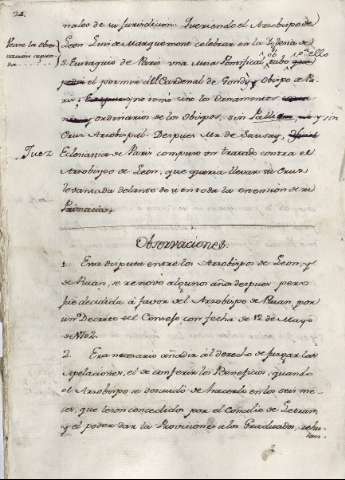 nales de su Jurisdiccion. Queriendo el Arzobispo de
Leon Luis de Marquemont celebrar en la Iglesia de
de Paris una Misa Pontifical, ello
el permiso del Cardenal de Gondy Obispo de Pa-
ris; y no usó sino los Ornamentos
y ordinarios de los Obispos, sin Pallium y sin
Cruz Arzobispal. Despues Mr. de Saussay,
Juez
Eclesiastico de Paris compuso un tratado contra el
Arzobispo de Leon, que queria llevar su Cruz
levantada delante de si en toda la extension de su
Primacia.
Observaciones.
1. Esta disputa entre los Arzobispos de Leon, y
de Ruan, se renovó algunos años despues pero
fue decidida à favor del Arzobispo de Ruan, por
un Decreto del Consejo con fecha de 12 de Mayo
de 1702.
2. Era necesario añadir al derecho de juzgar las
Apelaciones, el de conferir los Beneficios, quando
el Arzobispo se descuidó de hacerlo en los seis me-
ses, que le son concedidos por el Concilio de Letran,
y el poder dar las Provisiones a los Graduados,